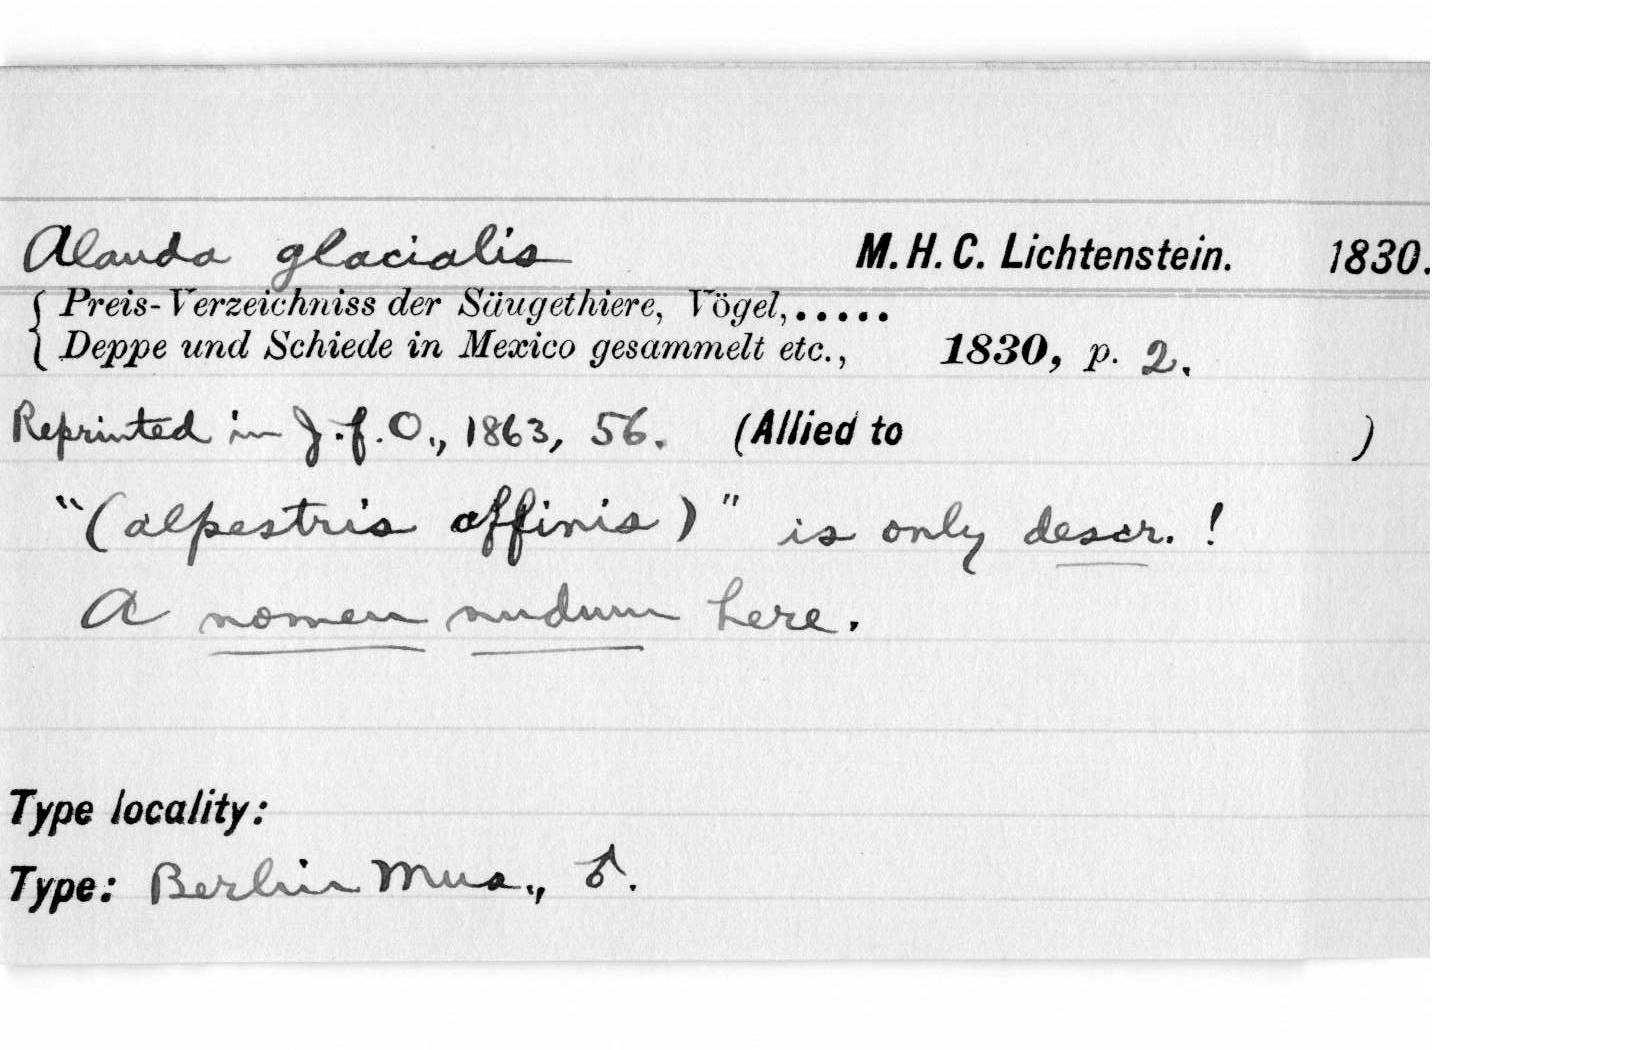 Alauda glacialis M. H. C. Lichtenstein. 1830.
{ Preis-Verzeichniss der Säugethiere, Vögel,.....
{ Deppe und Schiede in Mexico gesammelt etc., 1830, p. 2.
Reprinted in J.f.O., 1863, 56. (Allied to )
"(alpestris affinis)" is only descr.!
A nomen nudum here.
Type locality:
Type: Berlin Mus., ♂.